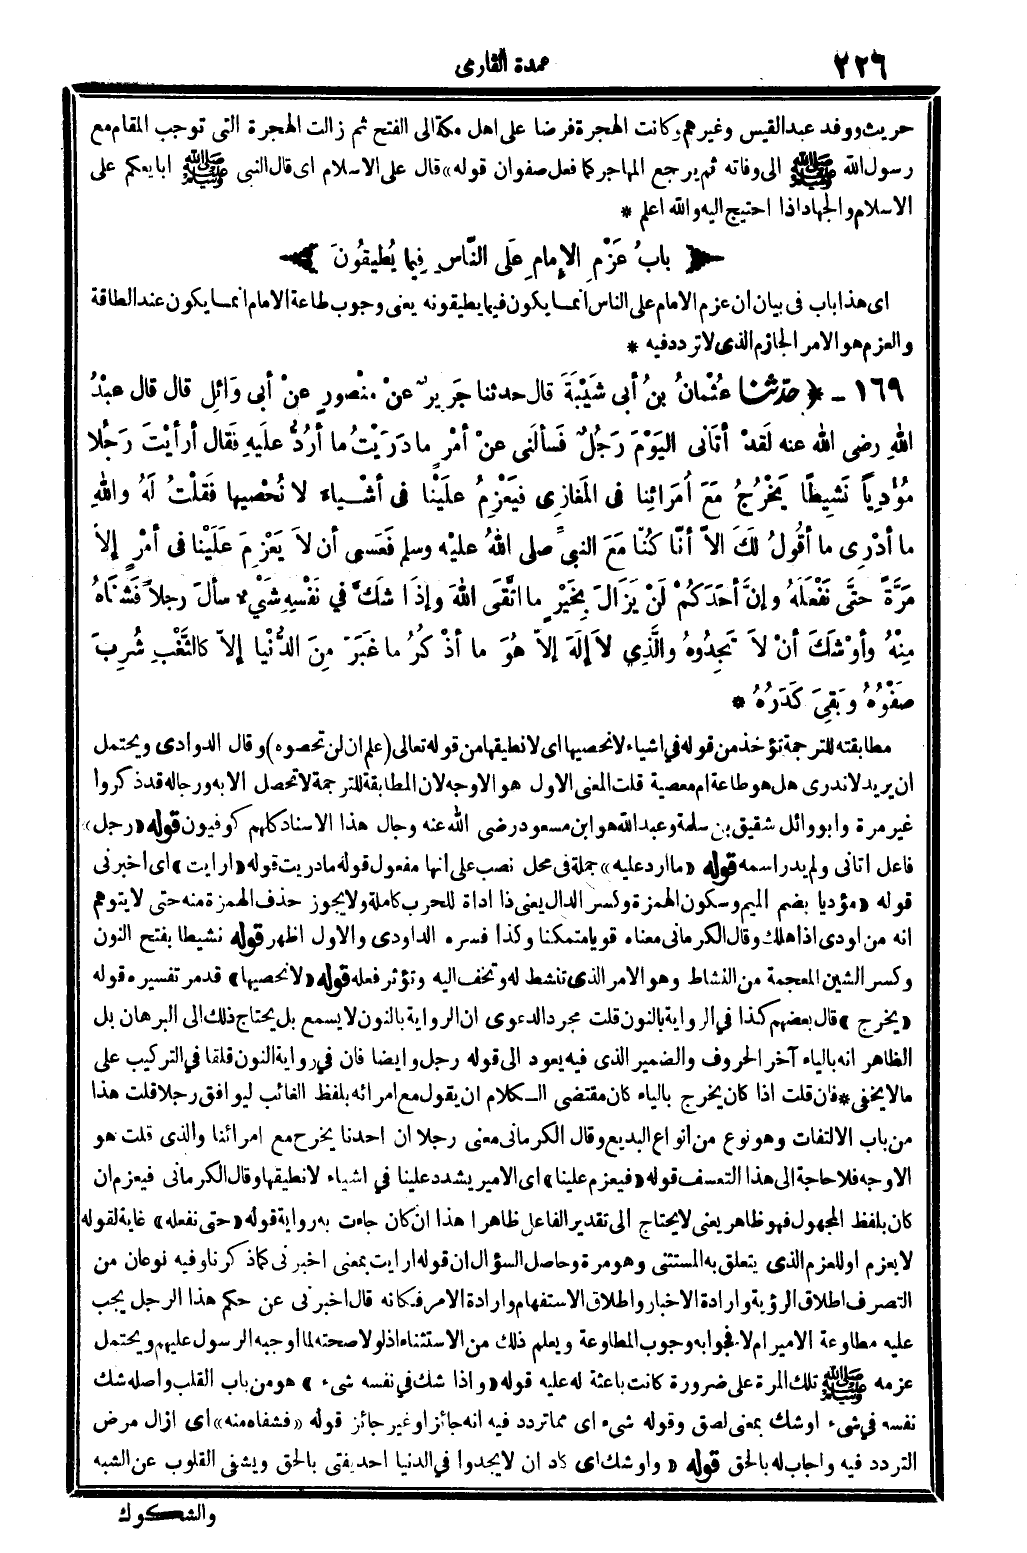 ٢٢٦
عمدة القارى
حريث ووفد عبد القيس وغيرهم وكانت الهجرة فرضا على اهل مكة الى الفتح ثم زالت الهجرة التى توجب المقام مع
رسول الله ﷺ الى وفاته ثم يرجع المهاجر كما فعل صفوان قوله «قال على الاسلام اى قال النبى ﷺ ابايعكم على
الاسلام والجهاد اذا احتيج اليه والله اعلم *
﴿ بابُ عَزْمِ الإِمامِ عَلَى النَّاسِ فِيما يُطيقُونَ ﴾
اى هذا باب فى بيان ان عزم الامام على الناس انما يكون فيما يطيقونه يعنى وجوب طاعة الامام انما يكون عند الطاقة
والعزم هو الامر الجازم الذى لا تردد فيه *
١٦٩ ـ ﴿ حدّثنا عُثْمانُ بنُ أبى شَيْبَةَ قال حدثنا جَرِيرٌ عنْ منْصورٍ عنْ أبى وَائِلٍ قال قال عبْدُ
اللهِ رضى الله عنه لَقدْ أتَانى اليَوْمَ رَجُلٌ فَسألَنى عنْ أمْرٍ مادَرَيْتُ ما أرُدُّ علَيهِ فَقال أرأيْتَ رَجُلا
مُؤْدِياً نَشِيطًا يَخْرُجُ مَعَ أُمَرَائِنا فى المَغازِى فيَعْزِمُ علَيْنا فى أشْياءَ لا نُحْصِيها فَقلْتُ لَهُ واللهِ
ما أدْرِى ما أقُولُ لَكَ الاَّ أنَّا كُنَّا مَعَ النبىِّ صلى اللهُ عليْه وسلم فَعَسى أن لاَ يَعْزِمَ عَلَيْنا فى أمْرٍ إلاَّ
مَرَّةً حتَّى نَفْعَلَهُ وإنَّ أحَدَكمْ لَنْ يَزَالَ بِخَيْرٍ ما اتَّقَى اللهَ وإذَا شَكَّ فِي نَفْسِهِ شَيْءٌ سألَ رجلاً فَشَفَاهُ
مِنْهُ وأوْشَكَ أنْ لاَ تَجِدُوهُ والَّذِي لاَ إلَهَ إلاَّ هُوَ ما أذْكُرُ ما غَبَرَ مِنَ الدُّنْيا إلاَّ كالثَّغْبِ شُرِبَ
صَفْوُهُ وبَقِىَ كَدَرُهُ *
مطابقته للترجمة تؤخذ من قوله في اشياء لا نحصيها اى لا نطيقها من قوله تعالى (علم ان لن تحصوه) وقال الدوادى ويحتمل
ان يريد لا ندرى هل هو طاعة ام معصية قلت المعنى الاول هو الاوجه لان المطابقة للترجمة لا تحصل الا به ورجاله قد ذكروا
غير مرة وابو وائل شقيق بن سلمة وعبد الله هو ابن مسعود رضى الله عنه وجال هذا الاسناد كلهم كوفيون قوله «رجل»
فاعل اتانى ولم يدر اسمه قوله «ما ارد عليه» جملة فى محل نصب على انها مفعول قوله ما دريت قوله «ارايت» اى اخبرنى
قوله «مؤديا بضم الميم وسكون الهمزة وكسر الدال يعنى ذا اداة للحرب كاملة ولا يجوز حذف الهمزة منه حتى لا يتوهم
انه من اودى اذا هلك وقال الكرمانى معناه قويا متمكنا وكذا فسره الداودى والاول اظهر قوله نشيطا بفتح النون
وكسر الشين المعجمة من النشاط وهو الامر الذى تنشط له وتخف اليه وتؤثر فعله قوله «لا نحصيها» قد مر تفسيره قوله
«يخرج» قال بعضهم كذا في الرواية بالنون قلت مجرد الدعوى ان الرواية بالنون لا يسمع بل يحتاج ذلك الى البرهان بل
الظاهر انه بالياء آخر الحروف والضمير الذى فيه يعود الى قوله رجل وايضا فان في رواية النون قلقا في التركيب على
مالا يخفى * فان قلت اذا كان يخرج بالياء كان مقتضى الكلام ان يقول مع امرائه بلفظ الغائب ليوافق رجلا قلت هذا
من باب الالتفات وهو نوع من انواع البديع وقال الكرمانى معنى رجلا ان احدنا يخرح مع امرائنا والذى قلت هو
الاوجه فلا حاجة الى هذا التعسف قوله «فيعزم علينا» اى الامير يشدد علينا في اشياء لا نطيقها وقال الكرمانى فيعزم ان
كان بلفظ المجهول فهو ظاهر يعنى لا يحتاج الى تقدير الفاعل ظاهرا هذا ان كان جاءت به رواية قوله «حتى نفعله» غاية لقوله
لا يعزم او للعزم الذى يتعلق به المستثنى وهو مرة وحاصل السؤال ان قوله ارايت بمعنى اخبرنى كما ذكرنا وفيه نوعان من
التصرف اطلاق الرؤية وارادة الاخبار واطلاق الاستفهام وارادة الامر فكانه قال اخبرنى عن حكم هذا الرجل يجب
عليه مطاوعة الامير ام لا فجوابه وجوب المطاوعة ويعلم ذلك من الاستثناء اذ لولا صحته لما اوجبه الرسول عليهم ويحتمل
عزمه ﷺ تلك المرة على ضرورة كانت باعثة له عليه قوله «واذا شك في نفسه شىء» هو من باب القلب واصله شك
نفسه في شىء او شك بمعنى لصق وقوله شىء اى مما تردد فيه انه جائز او غير جائز قوله «فشفاه منه» اى ازال مرض
التردد فيه واجاب له بالحق قوله «واوشك اى كاد ان لا يجدوا في الدنيا احد يفتى بالحق ويشفى القلوب عن الشبه
والشكوك